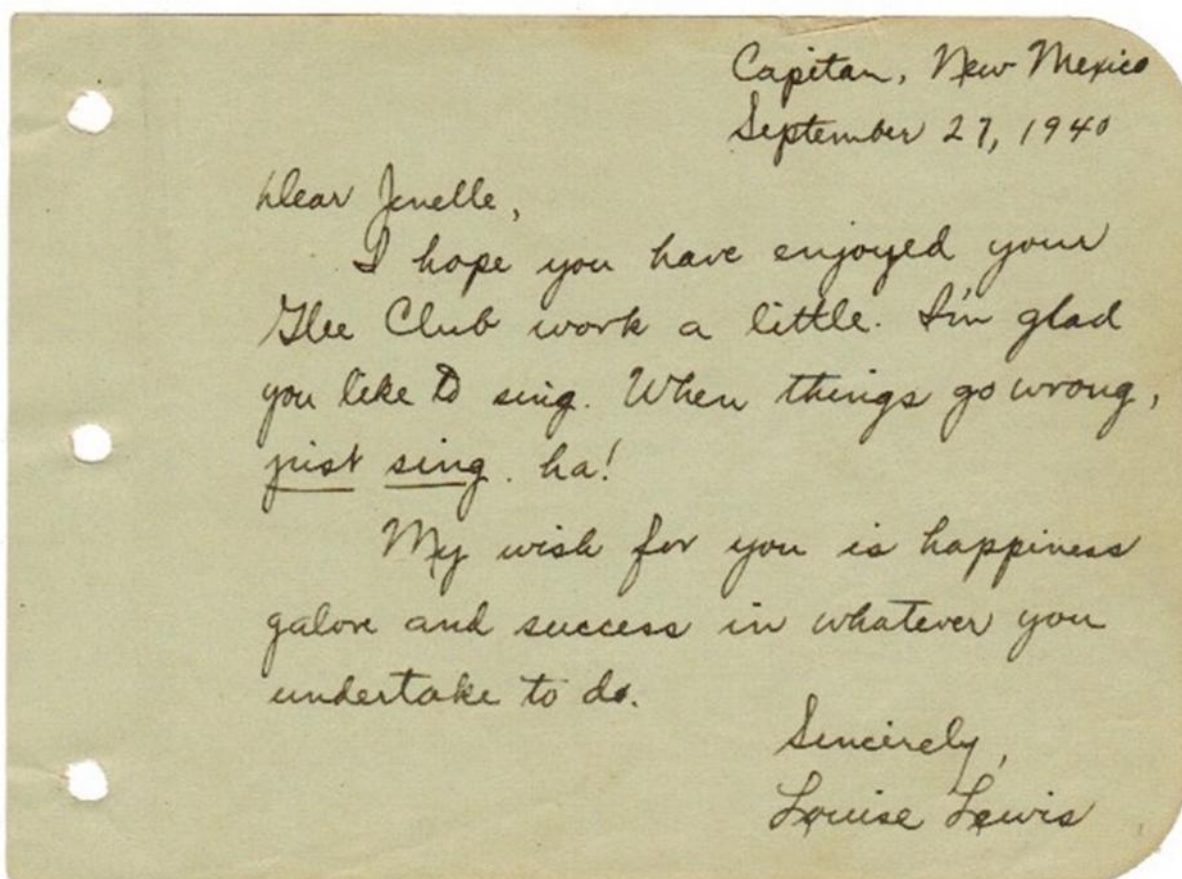 Capitan, New Mexico
September 27, 1940
Dear Jenelle,
I hope you have enjoyed your
Glee Club work a little. I'm glad
you like to sing. When things go wrong,
just sing. ha!
My wish for you is happiness
galore and success in whatever you
undertake to do.
Sincerely,
Louise Lewis